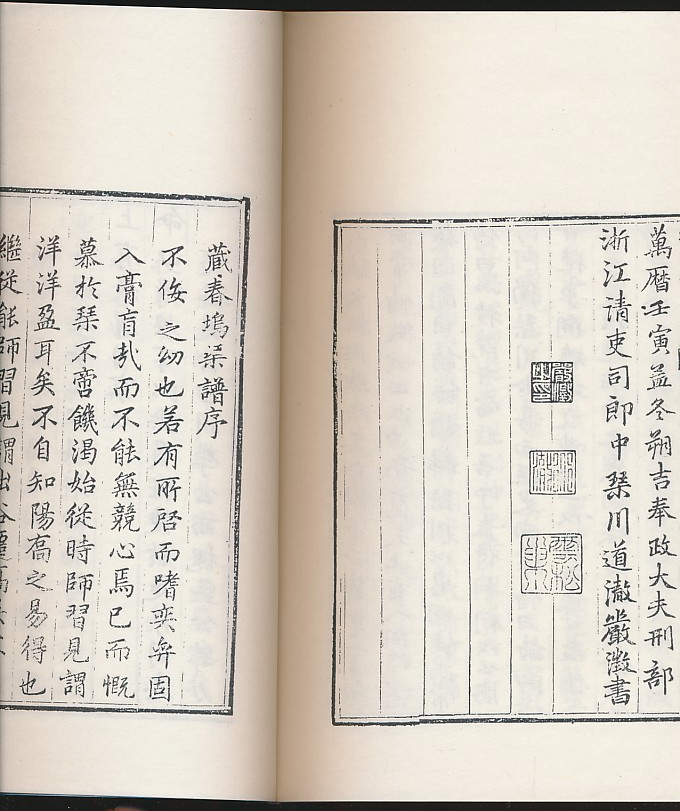 萬曆壬寅孟冬朔吉奉政大夫刑部
浙江清吏司郎中琹川道澈嚴澂書
嚴澂之印
雲松巢
藏春塢琹譜序
不佞之幼也若有所啓而嗜奕弈固
入膏肓哉而不能無競心焉已而慨
慕於琹不啻饑渴始從時師習見謂
洋洋盈耳矣不自知陽高之易得也
繼從能師習見謂出谷遷喬